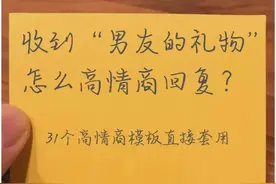 收到“男友的礼物”
怎么高情商回复？
31个高情商模板直接套用